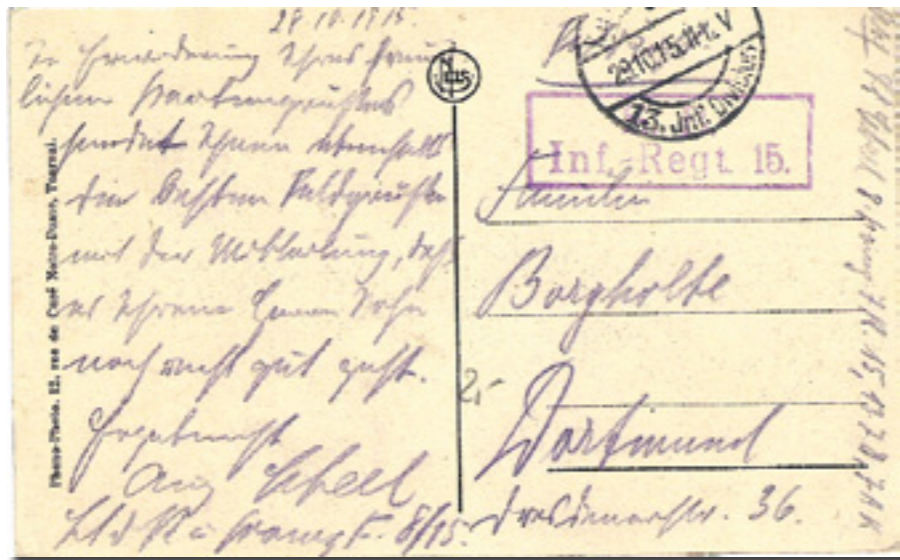 28.10.1915.
In Erwiderung Ihres freund-
lichen Kartengrußes
sendet Ihnen ebenfalls
die besten Feldgrüße
mit der Mitteilung, daß
es Ihrem Herrn Sohn
noch recht gut geht.
Ergebenst
Aug Scheel
8/15.
Phono-Photo, 12, rue de Curé Notre-Dame, Tournai.
29.10.15
13. Inf. Division
Inf.-Regt. 15.
Familie
Borgholte
Dortmund
2,-
Dresdenerstr. 36.